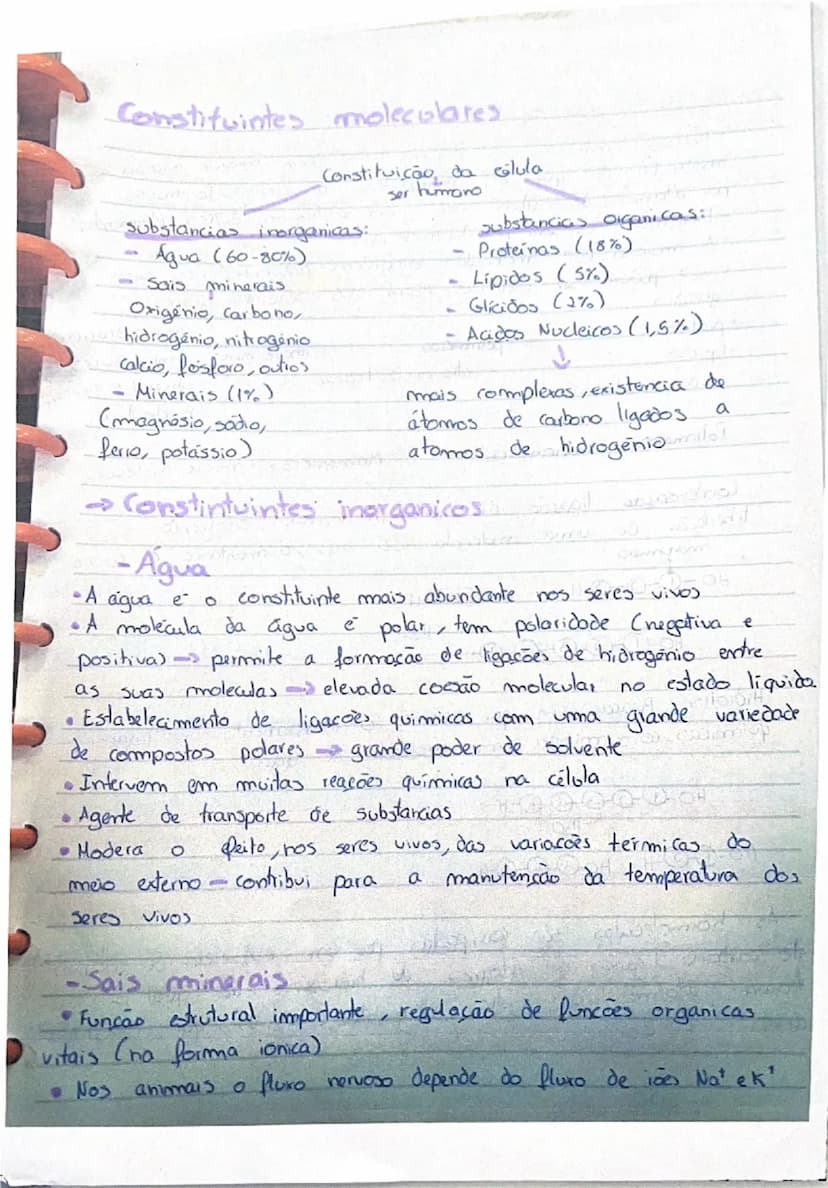 Constituintes moleculares
Constituição da célula
ser humano
substancias inorganicas:
- Água (60-80%)
- Sais minerais
Oxigénio, carbono,
hidrogénio, nitrogénio
calcio, fósforo, outros
- Minerais (1%)
(magnésio, sódio,
ferro, potássio)
substancias organicas:
- Proteínas (18%)
- Lípidos (5%)
- Glícidos (2%)
- Acidos Nucleicos (1,5%)
↓
mais complexas, existencia de
átomos de carbono ligados a
atomos de hidrogénio
→ Constintuintes inorganicos
- Água
• A água é o constituinte mais abundante nos seres vivos
• A molécula da água é polar, tem polaridade (negativa e
positiva) → permite a formação de ligações de hidrogénio entre
as suas moleculas → elevada coesão molecular no estado líquido
• Estabelecimento de ligações quimicas com uma grande variedade
de compostos polares → grande poder de solvente
• Intervem em muitas reações químicas na célula
• Agente de transporte de substancias
• Modera o feito, nos seres vivos, das variações termicas do
meio externo - contribui para a manutenção da temperatura dos
seres vivos
- Sais minerais
• Função estrutural importante, regulação de funcões organicas
vitais (na forma ionica)
• Nos animais o fluxo nervoso depende do fluxo de iões Na⁺ e K⁺